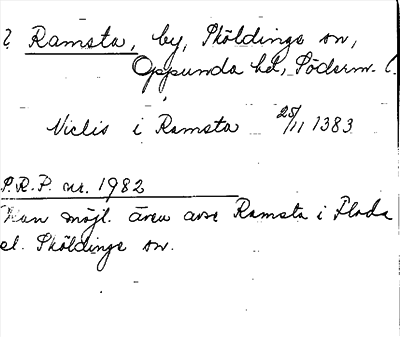 ? Ramsta, by, Sköldinge sn,
Oppunda hd, Söderm. l.
Niclis i Ramsta 25/11 1383
P.R.P. nr. 1982
Kan möjl. även avse Ramsta i Floda
el. Sköldinge sn.